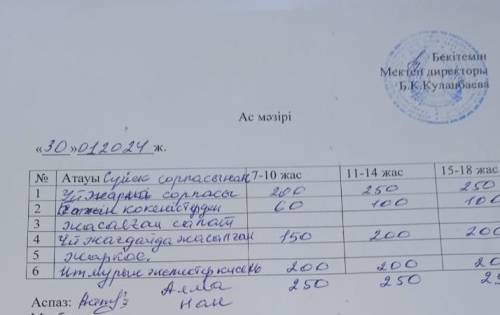 Бекітемін
Мектеп директоры
Б.К.Куланбаева
Ас мәзірі
«30»012024 ж.
№ Атауы Сүйек сорпасынан 7-10 жас 11-14 жас 15-18 жас
1 сорпасы 200 250 250
2 көкөністерден 60 100 100
3 жасалған салат
4 Үй жағдайда жасалған 150 200 200
5 жаркое.
6 Итмұрын жемістер кисель 200 200
Алма 250 250 25
Аспаз: Нан